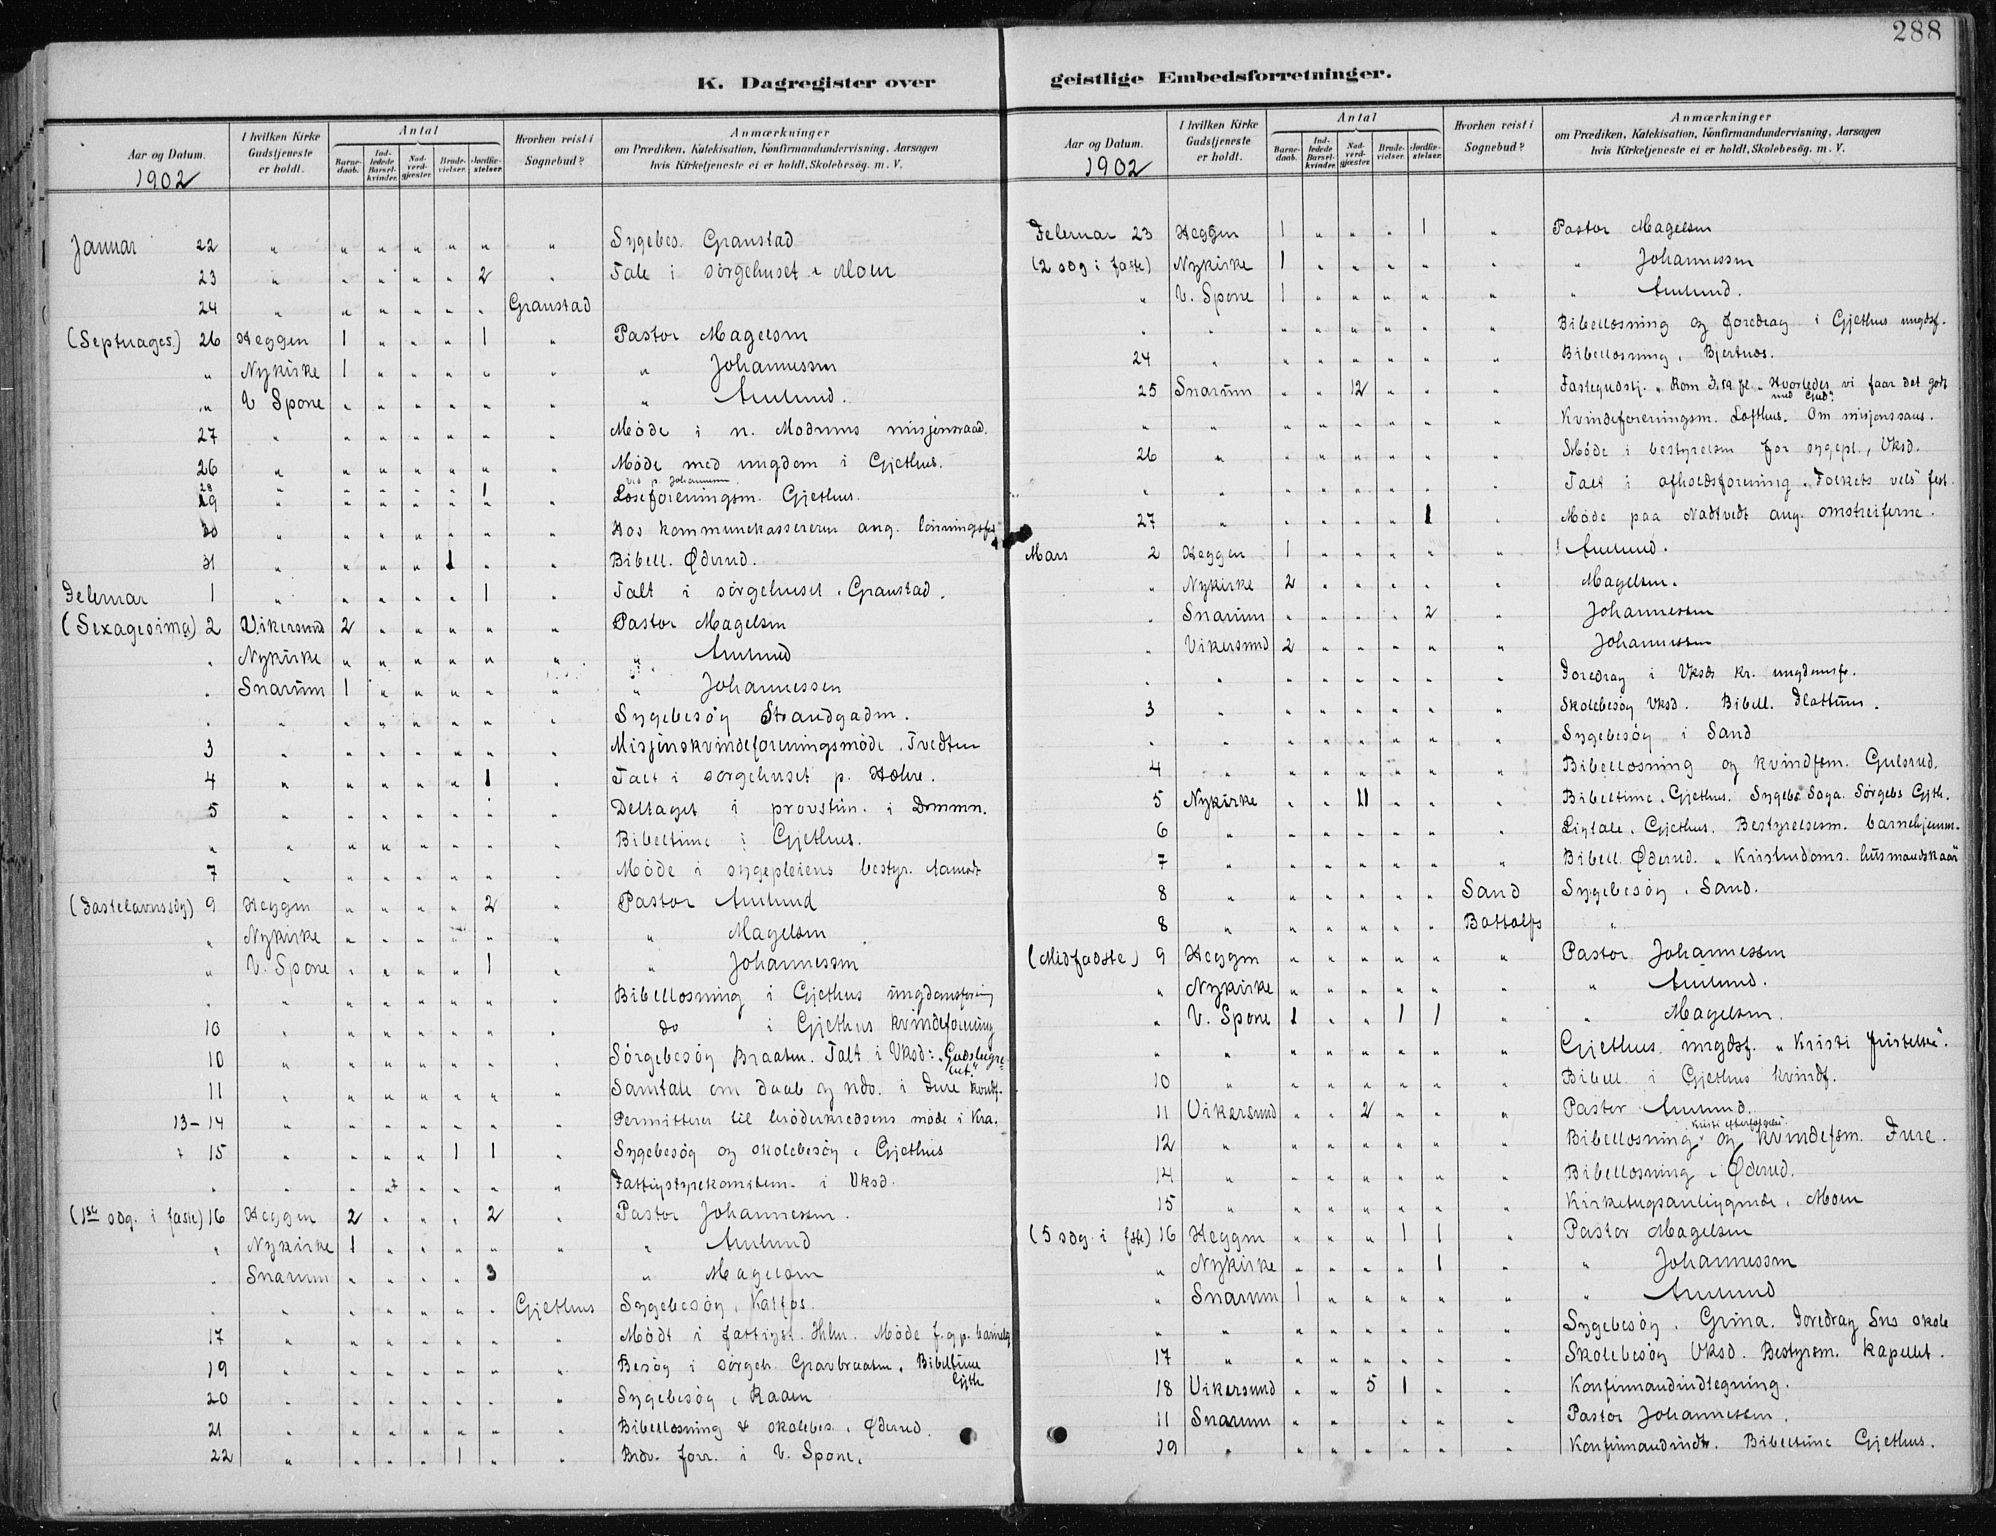 288
K. Dagregister over geistlige Embedsforretninger.
Aar og Datum. 1902
I hvilken Kirke Gudstjeneste er holdt.
Antal
Barne-daab.
Ind-ledede Barsel-kvinder.
Nad-verd-gjæster.
Brude-vielser.
Jordfæ-stelser.
Hvorhen reist i Sognebud?
Anmærkninger om Prædiken, Katekisation, Konfirmandundervisning, Aarsagen hvis Kirketjeneste ei er holdt, Skolebesög. m. V.
Januar 22 " " " " " " " Sygebes. Granstad
23 " " " " " 2 " Tale i sørgehuset i Moen
24 " " " " " " Granstad
(Septuages.) 26 Heggen 1 " " " 1 " Pastor Magelsen
" Nykirke 1 " " " " " " Johannessen
" V Spone " " " " " " " Amlund.
27 " " " " " " " Møde i n. Modums misjonsraad.
26 " " " " " " " Møde med ungdom i Gjethus.
28 ved p. Johannessen
29 " " " " " 1 " Læseforeningsm. Gjethus.
30 " " " " " " " Hos kommunekassereren ang. lønningsfs
31 " " " " 1 " " Bibell. Øderud.
Februar 1 " " " " " 1 " Talt i sørgehuset i Granstad.
(Sexagesima) 2 Vikersund 2 " " " " " Pastor Magelsen
" Nykirke " " " " " " " Amlund
" Snarum 1 " " " " " " Johannessen
" " " " " " " " Sygebesøg Strandgadm.
3 " " " " " " " Misjonskvindeforeningsmøde i Tvedten
4 " " " " " 1 " Talt i sørgehuset p. Holre.
5 " " " " " " " Deltaget i provstim. i Drammn.
" " " " " " " " Bibeltime i Gjethus.
7 " " " " " " " Møde i sygepleiens bestyr. Aamodt
(Fastelavnssøg) 9 Heggen " " " " 2 " Pastor Amlund
" Nykirke " " " " " " " Magelsen
" V. Spone " " " " 1 " " Johannessen
" " " " " " " " Bibellæsning i Gjethus ungdomsforening
10 " " " " " " " do i Gjethus kvindeforening
10 " " " " " " " Sørgebesøg Braaten. Talt i Vksd: "Gudsbegrebet."
11 " " " " " " " Samtale om daab og ndv. i Fure kvndf.
13-14 " " " " " " " Permitteret til brøderkredsens møde i Kra.
" 15 " " " " 1 1 " Sygebesøg og skolebesøg i Gjethus
" " " " " " " " Fattigstyrekomiteen i Vksd.
(1ste søg. i faste) 16 Heggen 2 " " " 2 " Pastor Johannessen.
" Nykirke 1 " " " " " " Amlund
" Snarum " " " " 3 " Magelsen
" " " " " " " Gjethus Sygebesøg i Kalfos.
17 " " " " " " " Mødt i fattigst. Hlm. Møde f. g.p. barnehj
19 " " " " " " " Besøg i sørgeh. Gravbraaten. Bibeltime Gjth
20 " " " " " " " Sygebesøg i Raaen
21 " " " " " " " Bibellæsning & skolebes. i Øderud.
22 " " " " 1 " " Brdv. forr. i V. Spone.
Aar og Datum. 1902
I hvilken Kirke Gudstjeneste er holdt.
Antal
Barne-daab.
Ind-ledede Barsel-kvinder.
Nad-verd-gjæster.
Brude-vielser.
Jordfæ-stelser.
Hvorhen reist i Sognebud?
Anmærkninger om Prædiken, Katekisation, Konfirmandundervisning, Aarsagen hvis Kirketjeneste ei er holdt, Skolebesög. m. V.
Februar 23 Heggen 1 " " " 1 " Pastor Magelsen
(2 søg i faste) Nykirke 1 " " " " " " Johannessen
" V. Spone 1 " " " " " " Amlund.
" " " " " " " " Bibellæsning og foredrag i Gjethus ungdsf.
24 " " " " " " " Bibellæsning i Bjertnæs.
25 Snarum " " 12 " " " Fastegudstj. " Rom 3,19 fl. "Hvorledes vi faar det godt med Gud".
" " " " " " " " Kvindeforeningsm. Lofthus. Om misjonssaus.
26 " " " " " " " Møde i bestyrelsen for sygepl., Vksd.
" " " " " " " " Talt i afholdsforening "Folkets vels" fest.
27 " " " " " 1 " Møde paa Nadtvedt ang. omstreiferne.
Mars 2 Heggen 1 " " " " " Amlund.
" Nykirke 2 " " " " " Magelsen.
" Snarum " " " " 2 " Johannessen
" Vikersund 2 " " " " " Johannessen
" " " " " " " " Foredrag i Vksds kr. ungdomsf.
3 " " " " " " " Skolebesøg Vksd. Bibell. Flattum.
" " " " " " " " Sygebesøg i Sand
4 " " " " " " " Bibellæsning og kvindfm. Gulsrud.
5 Nykirke " " 11 " " " Bibeltime i Gjethus. Sygebs Saga. Sørgebs Gjth.
6 " " " " " " " Ligtale i Gjethus. Bestyrelsesm. barnehjemm.
7 " " " " " " " Bibell. Øderud. " Kristendoms. husmandskaar
8 " " " " " " Sand Sygebesøg i Sand.
8 " " " " " " Bottolfs "
(Midfaste) 9 Heggen " " " " " " Pastor Johannessen
" Nykirke " " " " " " " Amlund.
" V. Spone 1 " " 1 1 " " Magelsen.
" " " " " " " " Gjethus ungdsf. "Kristi fristelse".
10 " " " " " " " Bibell i Gjethus kvindf.
11 Vikersund " " 2 " " " Pastor Amlund.
12 " " " " " " " Bibellæsning "Kristi efterfølgelse" og kvindefm. Fure.
14 " " " " " " " Bibellæsning i Øderud.
15 " " " " " " " Kirketugsanliggende i Moen
(5 søg. i fste) 16 Heggen " " " 1 1 " Pastor Magelsen
" Nykirke " " " " 1 " " Johannessen
" Snarum 1 " " " " " " Amlund
" " " " " " " " Sygebesøg i Grina. Foredrag Sns skole
17 " " " " " " " Skolebesøg Vksd. Bestyrsm. kapellet.
18 Vikersund " " 5 1 " " Konfirmandindtegning.
11 Snarum " " " " " " Pastor Johannessen.
19 " " " " " " " Konfirmandindt. Bibeltime Gjethus.